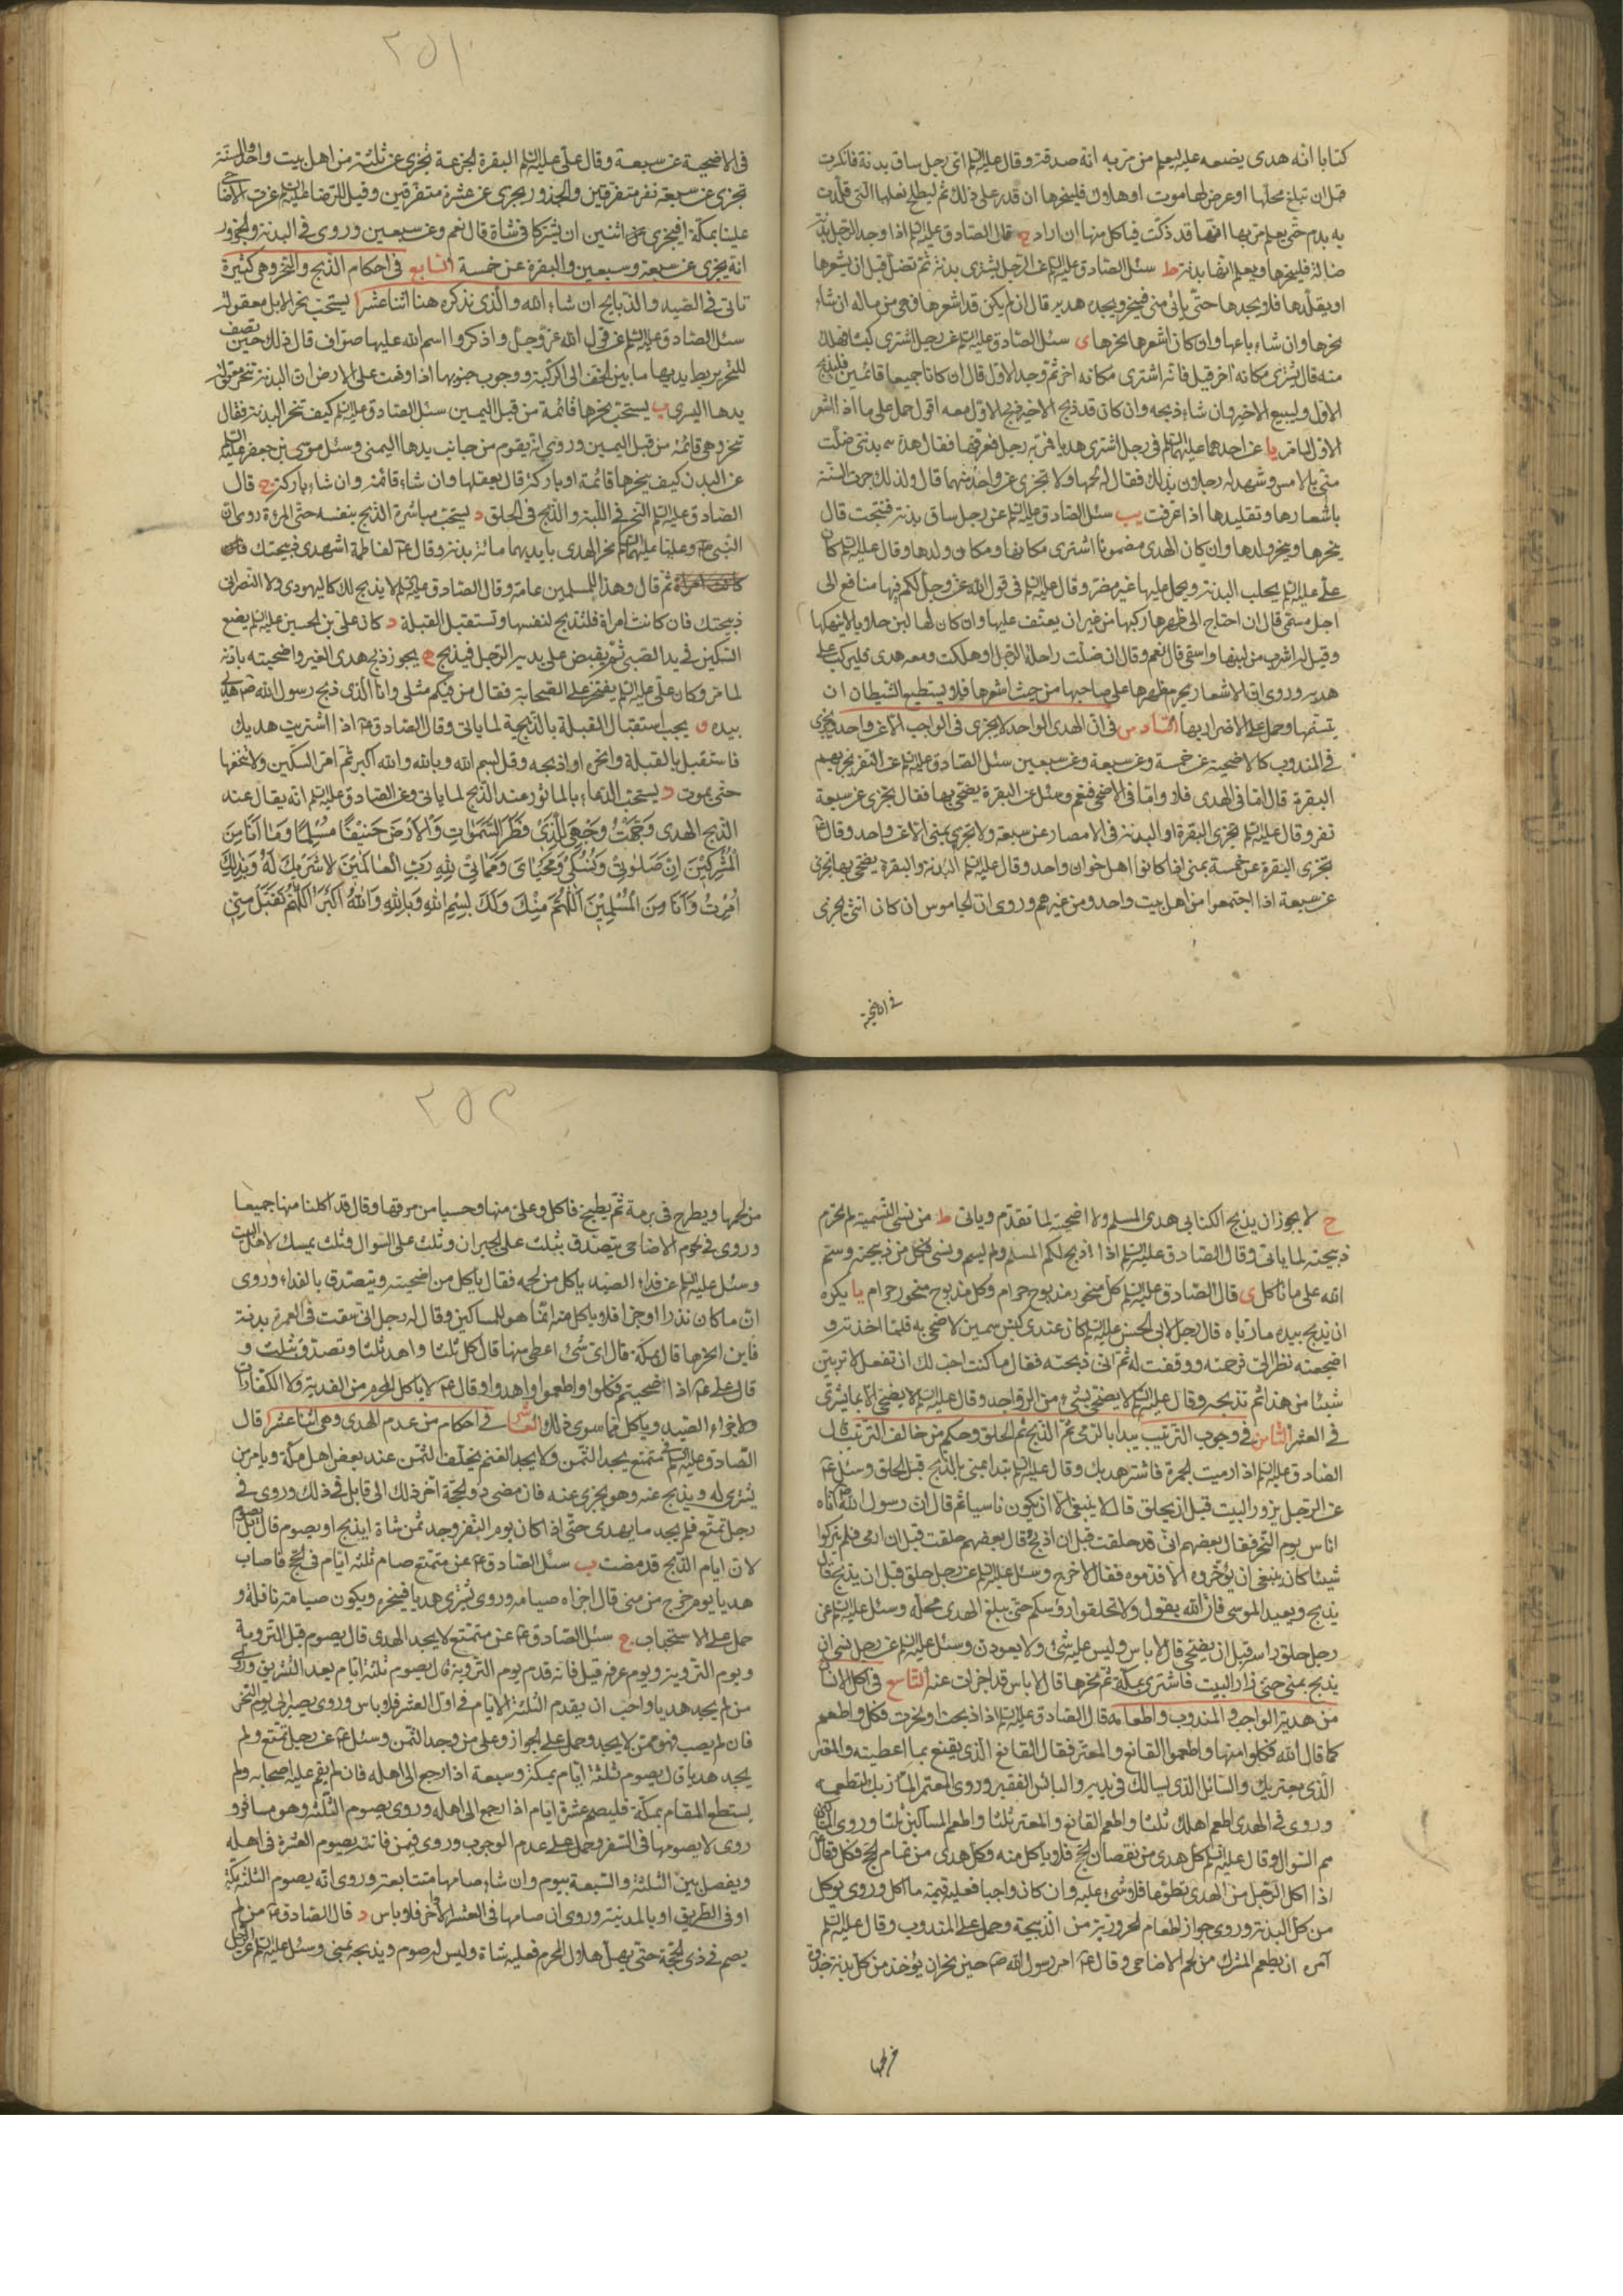 كتابا انه هدى يضعه عليه ليعلم من مر به انه صدقة وقال عليه السلم اى رجل ساق بدنة فانكسرت
قبل ان تبلغ محلها او عرض لها موت او هلاك فلينحرها ان قدر على ذلك ثم ليطلخ نعلها التى قلدت
به بدم حتى يعلم من مر بها انها قد ذكيت فياكل منها ان اراد ح قال الصادق عليه السلم اذا وجد الرجل بدنة
ضالة فلينحرها ويعلم انها بدنة ط سئل الصادق عليه السلم عن الرجل يشترى بدنة ثم تضل قبل ان يشعرها
او يقلدها فلا يجدها حتى ياتى منى فينحر ويجد هديه قال ان لم يكن قد اشعرها فهى من ماله ان شاء
نحرها وان شاء باعها وان كان اشعرها نحرها ى سئل الصادق عليه السلم عن رجل اشترى كبشا فهلك
منه قال يشترى مكانه اخر قيل فانه اشترى مكانه اخر ثم وجد الاول قال ان كانا جميعا قائمين فليذبح
الاول وليبيع الاخير وان شاء ذبحه وان كان قد ذبح الاخير ذبح الاول معه اقول حمل على ما اذا اشعر
الاول لما مر يا عن احدهما عليهما السلم فى رجل اشترى هديا فمر به رجل فعرفها فقال هذه بدنتى ضلت
منى بالامس وشهد له رجلان بذلك فقال له لحمها ولا تجزى عن واحد منهما قال ولذلك جرت السنة
باشعارها وتقليدها اذا عرفت يب سئل الصادق عليه السلم عن رجل ساق بدنة فنتجت قال
ينحرها وينحر ولدها وان كان الهدى مضمونا اشترى مكانها ومكان ولدها وقال عليه السلم كان
على عليه السلم يحلب البدنة ويحمل عليها غير مضر وقال عليه السلم فى قول الله عز وجل لكم فيها منافع الى
اجل مسمى قال ان احتاج الى ظهرها ركبها من غير ان يعنف عليها وان كان لها لبن حلابا لا ينهكها
وقيل له اشرب من لبنها واسقى قال نعم وقال ان ضلت راحلة الرجل او هلكت ومعه هدى فليركب على
هديه وروى ان الاشعار يحرم ظهرها على صاحبها من حيث اشعرها فلا يستطيع الشيطان ان
يتسنمها وحمل على الاضرار بها السادس فى ان الهدى الواحد لا يجزى فى الواجب الا عن واحد ويجزى
فى المندوب كالاضحية عن خمسة وعن سبعة وعن سبعين سئل الصادق عليه السلم عن النفر تجزيهم
البقرة قال اما فى الهدى فلا واما فى الاضحى فنعم وسئل عن البقرة يضحى بها فقال تجزى عن سبعة
نفر وقال عليه السلم تجزى البقرة او البدنة فى الامصار عن سبعة ولا تجزى بمنى الا عن واحد وقال
تجزى البقرة عن خمسة بمنى اذا كانوا اهل خوان واحد وقال عليه السلم البدنة والبقرة يضحى بها تجزى
عن سبعة اذا اجتمعوا من اهل بيت واحد ومن غيرهم وروى ان الجاموس ان كان انثى تجزى
فى الاضحية
٢٥١
فى الاضحية عن سبعة وقال على عليه السلم البقرة الجزعة تجزى عن ثلثة من اهل بيت واحد والمسنة
تجزى عن سبعة نفر متفرقين والجذور يجزى عن عشرة متفرقين وقيل للرضا عليه السلم عزت الاضاحى
علينا بمكة افيجزى عن اثنين ان يشتركا فى شاة قال نعم وعن سبعين وروى فى البدنة والجزور
انه يجزى عن سبعة وسبعين والبقرة عن خمسة السابع فى احكام الذبح والنحر وهى كثيرة
تاتى فى الصيد والذبايح ان شاء الله والذى نذكره هنا اثنا عشر ا يستحب نحر الابل معقولة
سئل الصادق عليه السلم عن قول الله عز وجل واذكروا اسم الله عليها صواف قال ذلك حين تصف
للنحر يربط يديها ما بين الخف الى الركبة ووجوب جنوبها اذا وقعت على الارض ان البدنة تنحر معقولة
يدها اليسرى ب يستحب نحرها قائمة من قبل اليمين سئل الصادق عليه السلم كيف تنحر البدنة فقال
تنحر وهى قائمة من قبل اليمين وروى انه يقوم من جانب يدها اليمنى وسئل موسى بن جعفر عليه السلم
عن البدن كيف ينحرها قائمة او باركة قال يعقلها وان شاء قائمة وان شاء باركة ج قال
الصادق عليه السلم النحر فى اللبة والذبح فى الحلق د يستحب مباشرة الذبح بنفسه حتى المرئة روى ان
النبى وعليا عليهما السلم نحر الهدى بايديهما مائة بدنة وقال لفاطمة اشهدى ذبيحتك
ثم قال وهذا للمسلمين عامة وقال الصادق عليه السلم لا يذبح لك اليهودى ولا النصرانى
ذبيحتك فان كانت امراة فلتذبح لنفسها وتستقبل القبلة د كان على بن الحسين عليه السلم يضع
السكين فى يد الصبى ثم يقبض على يديه الرجل فيذبح ه يجوز ذبح هدى الغير واضحيته باذنه
لما مر وكان على عليه السلم يفتخر على الصحابة فقال من فيكم مثلى وانا الذى ذبح رسول الله هديه
بيده و يجب استقبال القبلة بالذبيحة لما ياتى وقال الصادق اذا اشتريت هديك
فاستقبل بالقبلة وانحره او اذبحه وقل بسم الله وبالله والله اكبر ثم امر السكين ولا تنخعها
حتى يموت ز يستحب الدعاء بالماثور عند الذبح لما ياتى وعن الصادق عليه السلم انه يقال عند
الذبح الهدى وَجَّهْتُ وَجْهِىَ لِلَّذِى فَطَرَ السَّمٰوٰاتِ وَالْاَرْضَ حَنِيْفًا مُسْلِمًا وَمَا اَنَا مِنَ
الْمُشْرِكِيْنَ اِنَّ صَلٰوتِىْ وَنُسُكِى وَمَحْيَاىَ وَمَمَاتِى لِلّٰهِ رَبِّ الْعَالَمِيْنَ لَا شَرِيْكَ لَهُ وَبِذٰلِكَ
اُمِرْتُ وَاَنَا مِنَ الْمُسْلِمِيْنَ اَللّٰهُمَّ مِنْكَ وَلَكَ بِسْمِ اللهِ وَبِاللهِ وَاللهُ اَكْبَرُ اَللّٰهُمَّ تَقَبَّلْ مِنِّى
ح لا يجوز ان يذبح الكتابى هدى المسلم ولا اضحيته لما تقدم وياتى ط من نسى التسمية لم تحرم
ذبيحته لما ياتى وقال الصادق عليه السلم اذا ذبح لكم المسلم ولم يسم ونسى فكل من ذبيحته وسم
الله على ما تاكل ى قال الصادق عليه السلم كل منحور مذبوح حرام وكل مذبوح منحور حرام يا يكره
ان يذبح بيده ما رباه قال رجل لابى الحسن عليه السلم كان عندى كبش سمين لاضحى به فلما اخذته و
اضجعته نظر الى فرحمته ورققت له ثم انى ذبحته فقال ما كنت احب لك ان تفعل لا تربين
شيئا من هذا ثم تذبحه وقال عليه السلم لا يضحى بشىء من الدواجن وقال عليه السلم لا يضحى الا بما يشترى
فى العشر الثامن فى وجوب الترتيب يبدا بالرمى ثم الذبح ثم الحلق وحكم من خالف الترتيب قال
الصادق عليه السلم اذا رميت الجمرة فاشتر هديك وقال عليه السلم تبدا بمنى بالذبح قبل الحلق وسئل
عن الرجل يزور البيت قبل ان يحلق قال لا ينبغى الا ان يكون ناسيا ثم قال ان رسول الله اتاه
اناس يوم النحر فقال بعضهم انى قد حلقت قبل ان اذبح وقال بعضهم حلقت قبل ان ارمى فلم يتركوا
شيئا كان ينبغى ان يؤخروه الا قدموه فقال لا حرج وسئل عليه السلم عن رجل حلق قبل ان يذبح قال
يذبح ويعيد الموسى فان الله يقول ولا تحلقوا رؤسكم حتى يبلغ الهدى محله وسئل عليه السلم عن
رجل حلق راسه قبل ان يضحى قال لا باس وليس عليه شىء ولا يعودن وسئل عليه السلم عن رجل نسى ان
يذبح بمنى حتى زار البيت فاشترى بمكة ثم نحرها قال لا باس قد اجزات عنه التاسع فى اكل الانسان
من هديه الواجب والمندوب واطعامه قال الصادق عليه السلم اذا ذبحت او نحرت فكل واطعم
كما قال الله فكلوا منها واطعموا القانع والمعتر فقال القانع الذى يقنع بما اعطيته والمعتر
الذى يعتريك والسائل الذى يسالك فى يديه والبائس الفقير وروى المعتر المار بك لتطعمه
وروى فى الهدى اطعم اهلك ثلثا واطعم القانع والمعتر ثلثا واطعم المساكين ثلثا وروى المساكين
هم السؤال وقال عليه السلم كل هدى من نقصان الحج فلا ياكل منه وكل هدى من تمام الحج فكل وقال
اذا اكل الرجل من الهدى تطوعا فلا شىء عليه وان كان واجبا فعليه قيمة ما اكل وروى يوكل
من كل البدنة وروى جواز اطعام الحرورية من الذبيحة وحمل على المندوب وقال عليه السلم
ان يطعم المشرك من لحم الاضاحى وقال امر رسول الله حين نحر ان يؤخذ من كل بدنة جذوة
من لحمها
٢٥٢
من لحمها ويطرح فى برمة ثم يطبخ فاكل وعلى منها وحسيا من مرقها وقال قد اكلنا منها جميعا
وروى فى لحوم الاضاحى يتصدق بثلث على الجيران وثلث على السؤال وثلث يمسك لاهل البيت
وسئل عليه السلم عن فداء الصيد ياكل من لحمه فقال ياكل من اضحيته ويتصدق بالفداء وروى
ان ما كان نذرا او جزاء فلا ياكل منه انما هو للمساكين وقال له رجل انى سقت فى العمرة بدنة
فاين انحرها قال بمكة قال اى شىء اعطى منها قال كل ثلثا واهد ثلثا وتصدق بثلث و
قال على اذا ضحيتم فكلوا واطعموا واهدوا وقال لا ياكل المحرم من الفدية ولا الكفارات
ولا جزاء الصيد وياكل مما سوى ذلك العاشر فى احكام من عدم الهدى وهى اثنا عشر ا قال
الصادق عليه السلم فى متمتع يجد الثمن ولا يجد الغنم يخلف الثمن عند بعض اهل مكة ويامر من
يشترى له ويذبح عنه وهو يجزى عنه فان مضى ذو الحجة اخر ذلك الى قابل فى ذلك وروى فى
رجل تمتع فلم يجد ما يهدى حتى اذا كان يوم النفر وجد ثمن شاة ايذبح او يصوم قال بل يصوم
لان ايام الذبح قد مضت ب سئل الصادق عن متمتع صام ثلثه ايام فى الحج فاصاب
هديا يوم خرج من منى قال اجزاه صيامه وروى يشترى هديا فينحره ويكون صيامه نافلة و
حمل على الاستحباب ج سئل الصادق عن متمتع لا يجد الهدى قال يصوم قبل التروية
ويوم التروية ويوم عرفة قيل فانه قدم يوم التروية قال يصوم ثلثة ايام بعد التشريق وروى
من لم يجد هديا واحب ان يقدم الثلثة الايام فى اول العشر فلا باس وروى يصبر الى يوم النحر
فان لم يصب فهو ممن لا يجد وحمل على الجواز وعلى من وجد الثمن وسئل عن رجل تمتع ولم
يجد هديا قال يصوم ثلثة ايام بمكة وسبعة اذا رجع الى اهله فان لم يقم عليه اصحابه ولم
يستطع المقام بمكة فليصم عشرة ايام اذا رجع الى اهله وروى يصوم الثلثة وهو مسافر و
روى لا يصومها فى السفر وحمل على عدم الوجوب وروى فيمن فاتته يصوم العشرة فى اهله
ويفصل بين الثلثة والسبعة بيوم وان شاء صامها متتابعة وروى انه يصوم الثلثة بمكة
او فى الطريق او بالمدينة وروى ان صامها فى العشر الاخر فلا باس د قال الصادق من لم
يصم فى ذى الحجة حتى يهل هلال المحرم فعليه شاة وليس له صوم ويذبحه بمنى وسئل عليه السلم عن رجل